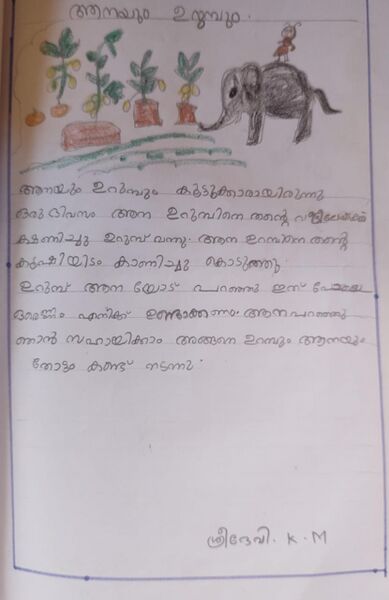 ആനയും ഉറുമ്പും.
ആനയും ഉറുമ്പും കൂട്ടുക്കാരായിരുന്നു
ഒരു ദിവസം ആന ഉറുമ്പിനെ തന്റെ
ക്ഷണിച്ചു ഉറുമ്പ് വന്നു. ആന ഉറുമ്പിനെ തന്റെ
കൃഷിയിടം കാണിച്ചു കൊടുത്തു.
ഉറുമ്പ് ആന യോട് പറഞ്ഞു ഇത് പോലെ
ഒരെണ്ണം എനിക്ക് ഉണ്ടാക്കണം. ആന പറഞ്ഞു
ഞാൻ സഹായിക്കാം അങ്ങനെ ഉറുമ്പും ആനയും
തോട്ടം കണ്ട് നടന്നു.
ശ്രീദേവി. K. M